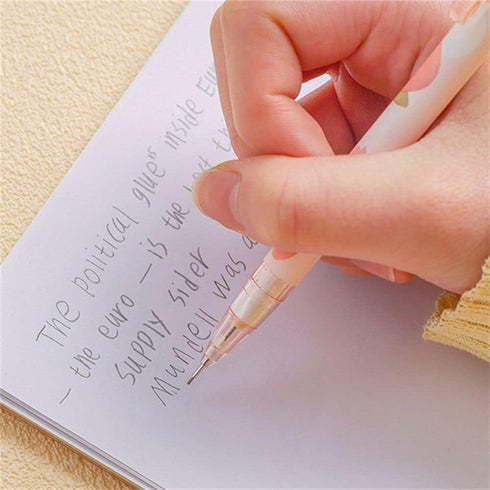 The political glue" inside Eu
- the euro - is the
supply sider
Mundell was a